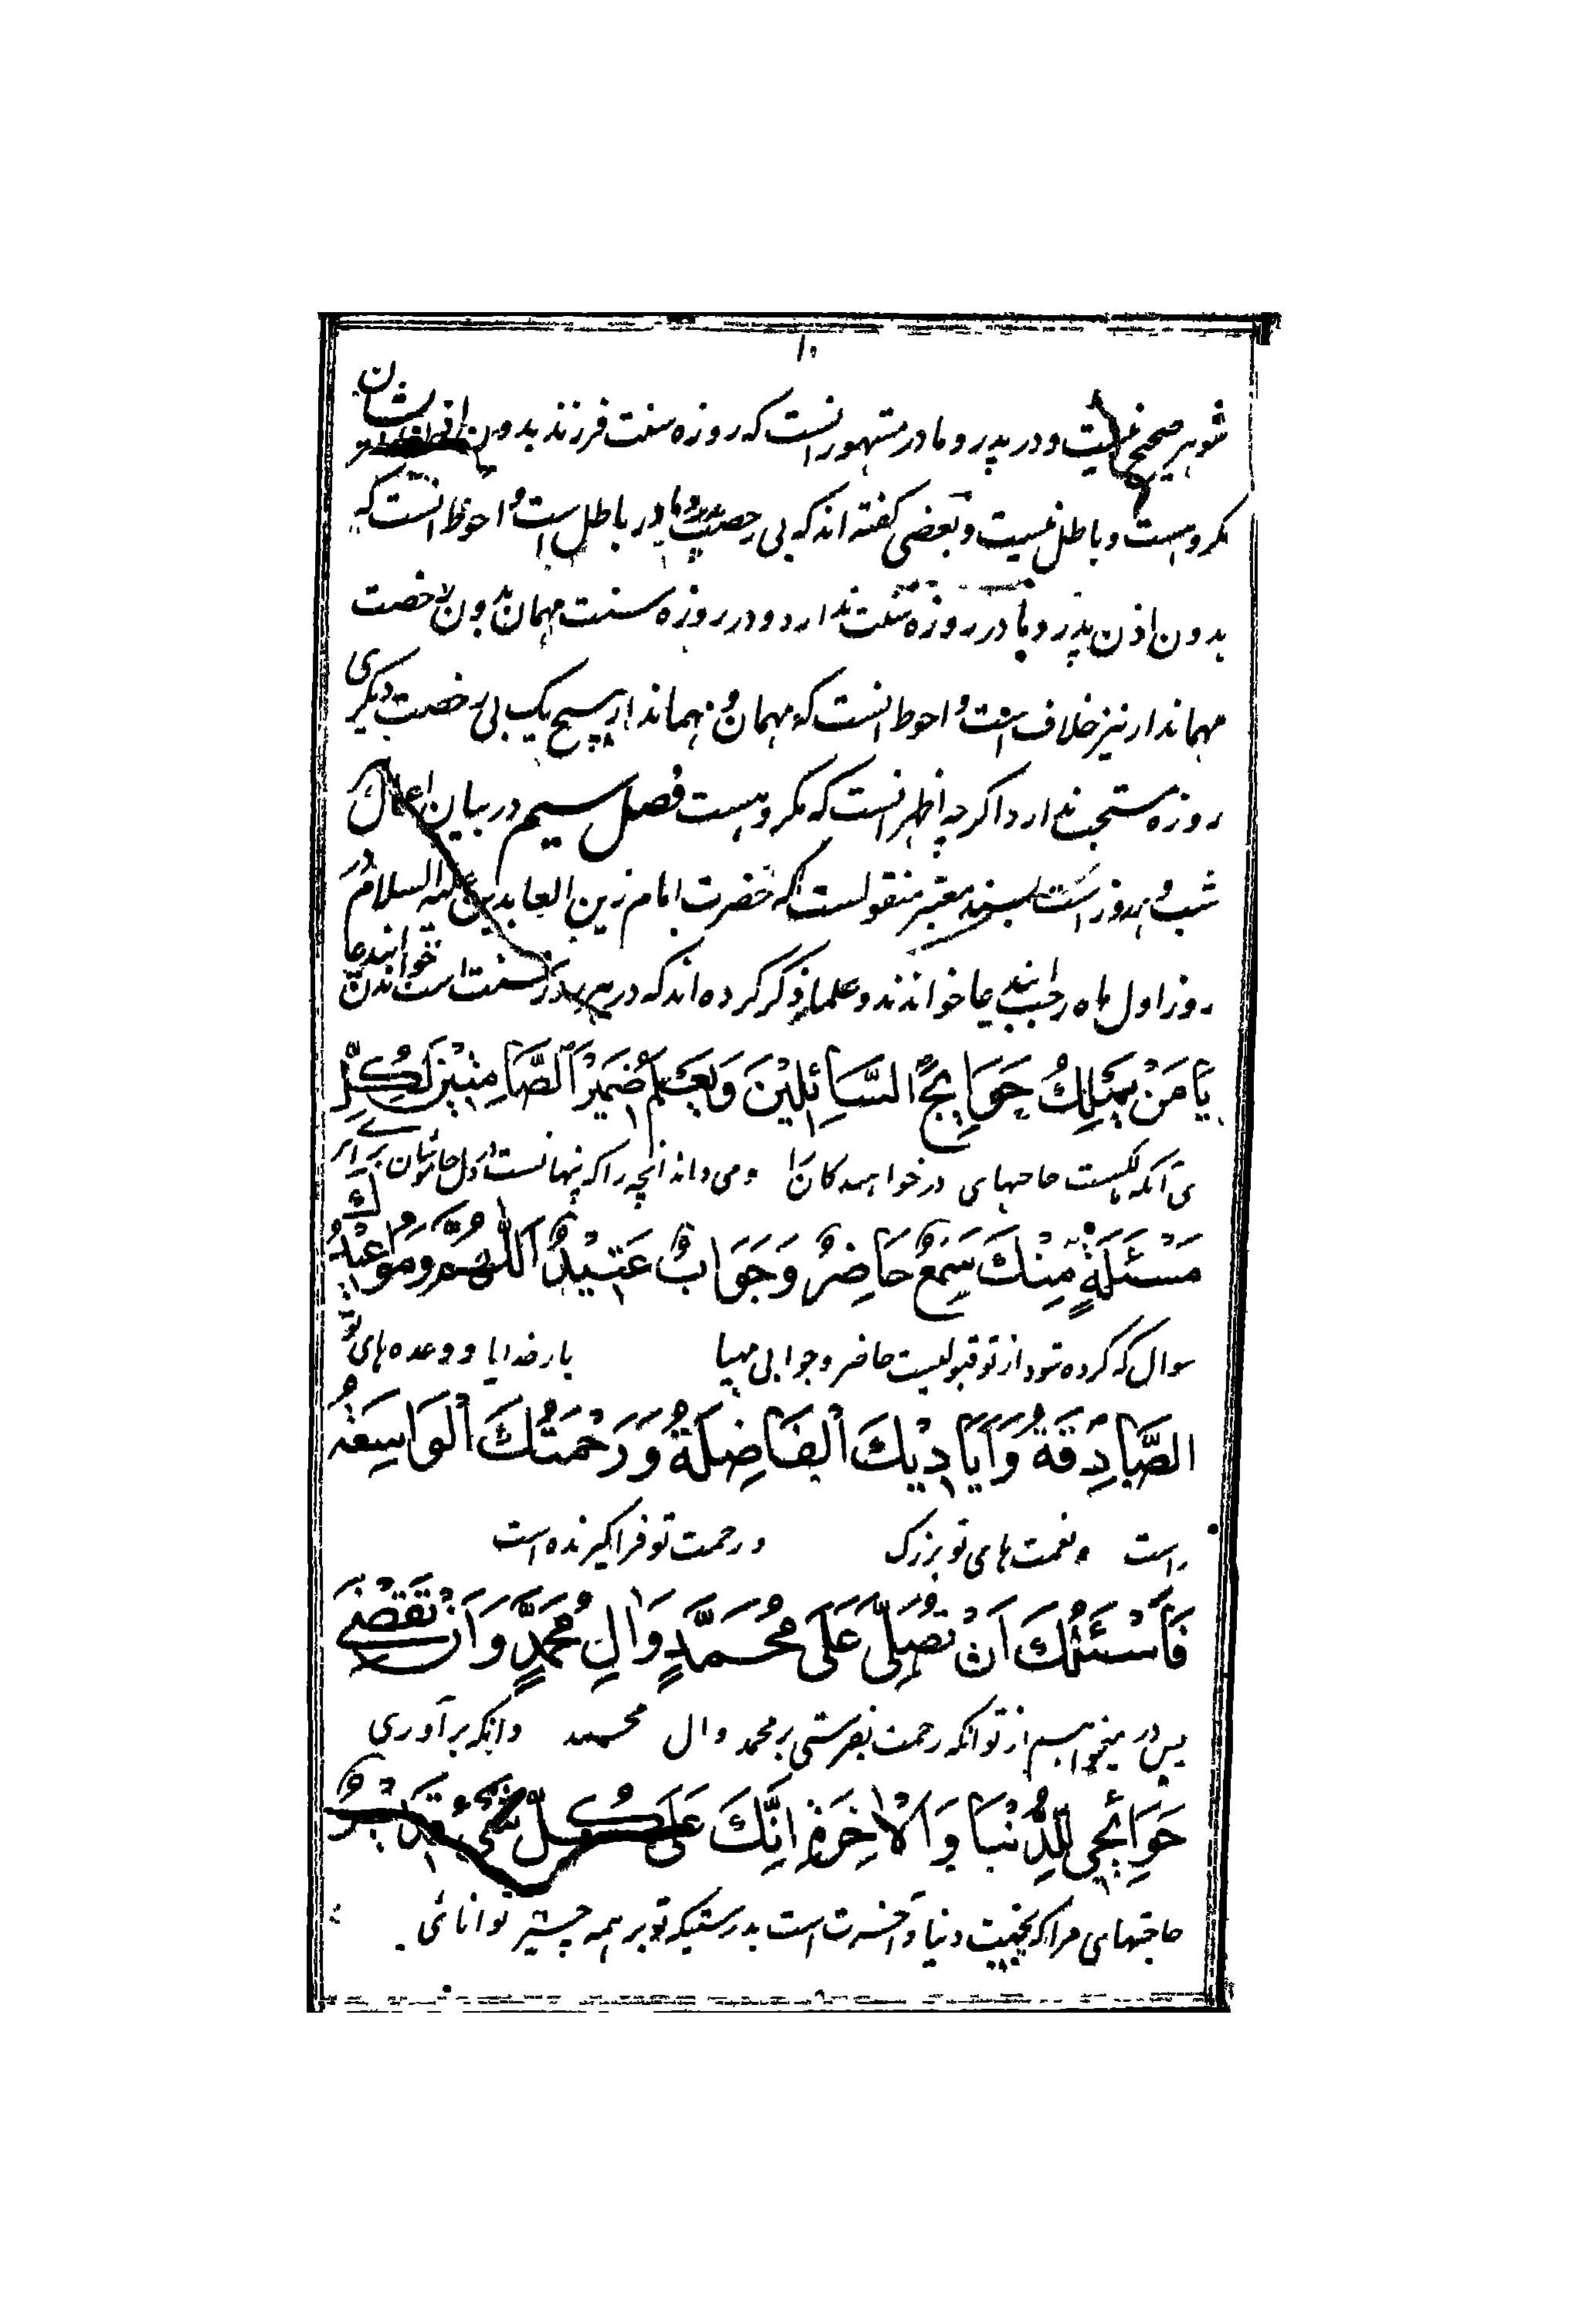 ۱۰
شوهر صحیح نیست و در پدر و مادر مشهور انست که روزه سنت فرزند بدون اذن ایشان
مکروهست و باطل نیست و بعضی کفته اند که بی رخصت پدر و مادر باطل است و احوط انست که
بدون اذن پدر و مادر روزه سنت ندارد و در روزه سنت مهمان بدون رخصت
مهماندار نیز خلاف است و احوط انست که مهمان و مهماندار هیچ یک بی رخصت دیکری
روزه مستحب ندارد اکر چه اظهر انست که مکروهست فصل سیم در بیان اعمال
شب و روز است بسند معتبر منقولست که حضرت امام زین العابدین علیه السلام در
روز اول ماه رجب ایندعا خواندند و علما ذکر کرده اند که در هر روز سنت است خواندن ایندعا
يَا مَنْ يَمْلِكُ حَوَائِجَ السَّائِلِيْنَ وَيَعْلَمُ ضَمِيْرَ الصَّامِتِيْنَ لِكُلِّ
ی آنکه مالکست حاجتهای درخواهندکان را و می داند انچه را که پنهانست در دل خاموشان برای هر
مَسْئَلَةٍ مِنْكَ سَمْعٌ حَاضِرٌ وَجَوَابٌ عَتِيْدٌ اَللّٰهُمَّ وَمَوَاعِيْدُكَ
سوال که کرده شود از تو قبولیست حاضر و جوابی مهیا بار خدایا و وعده های تو
الصَّادِقَةُ وَاَيَادِيْكَ الْفَاضِلَةُ وَرَحْمَتُكَ الْوَاسِعَةُ
راست و نعمت های تو بزرک و رحمت تو فراکیرنده است
فَاَسْئَلُكَ اَنْ تُصَلِّىَ عَلَى مُحَمَّدٍ وَاٰلِ مُحَمَّدٍ وَاَنْ تَقْضِىَ
پس در میخواهم از تو انکه رحمت بفرستی بر محمد و ال محمد و انکه بر آوری
حَوَائِجِى لِلدُّنْيَا وَالْاٰخِرَةِ اِنَّكَ عَلَى كُلِّ شَىْءٍ قَدِيْرٌ
حاجتهای مرا که بجهت دنیا و آخرت است بدرستیکه تو بر همه چیز توانائی